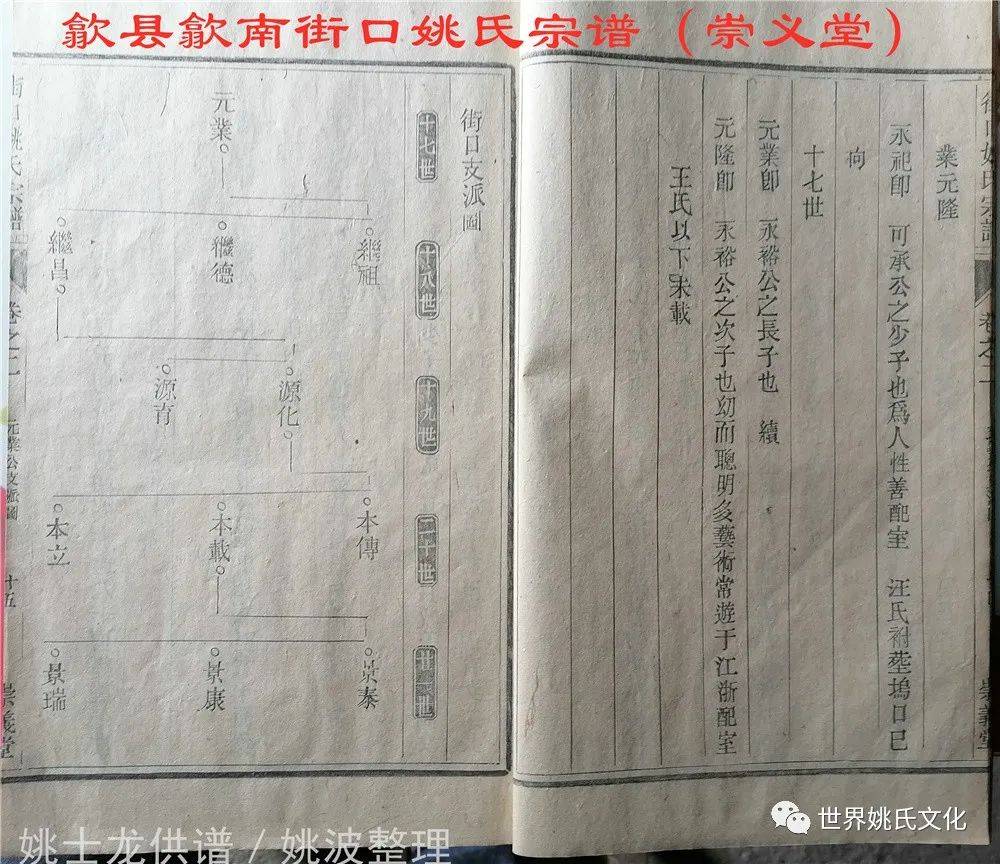 歙县歙南街口姚氏宗谱（崇义堂）
業元隆
永祀卽 可承公之少子也爲人性善配室 汪氏祔塟塢口巳
向
十七世
元業卽 永裕公之長子也 續
元隆卽 永裕公之次子也幼而聰明多藝術常遊于江浙配室
王氏以下未載
街口支派圖
十七世
十八世
十九世
二十世
廿一世
元業
繼祖
繼德
繼昌
源化
源育
本傳
本載
本立
景泰
景康
景瑞
街口姚氏宗譜
卷之二
元業公支派圖
十五
崇義堂
姚士龙供谱 / 姚波整理
世界姚氏文化